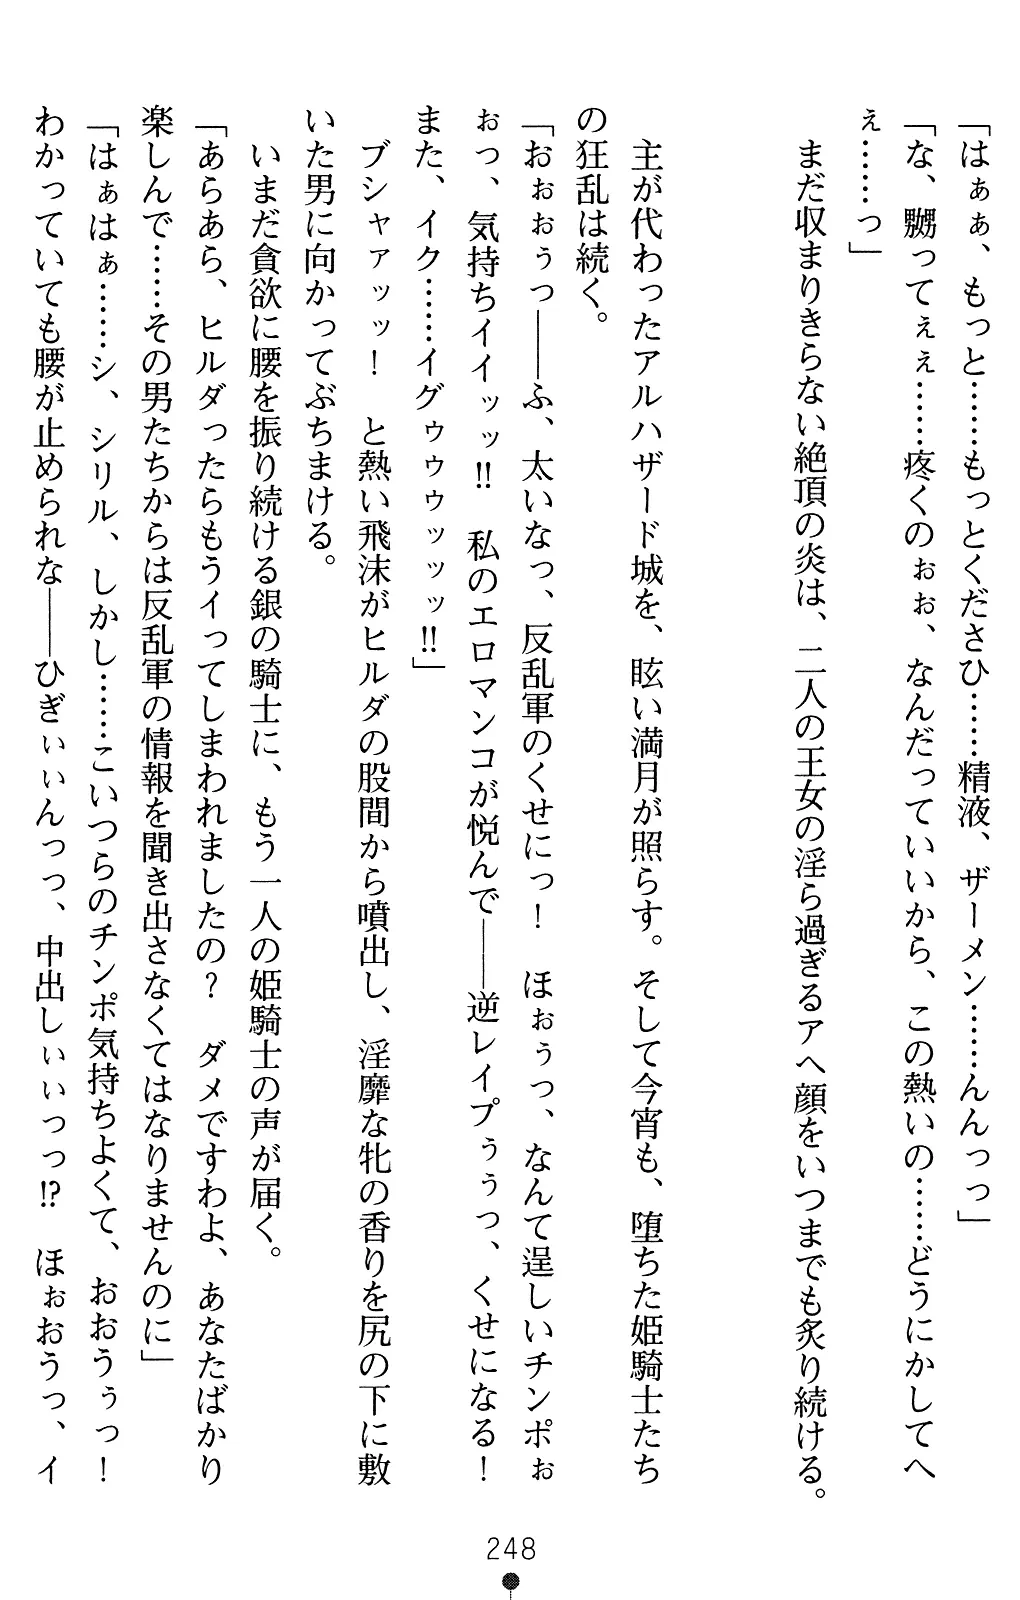 「はぁぁ、もっと……もっとくださひ……精液、ザーメン……んんっっ」
「な、嬲ってぇぇ……疼くのぉぉ、なんだっていいから、この熱いの……どうにかしてへ
ぇ……っ」
まだ収まりきらない絶頂の炎は、二人の王女の淫ら過ぎるアヘ顔をいつまでも炙り続ける。
主が代わったアルハザード城を、眩い満月が照らす。そして今宵も、堕ちた姫騎士たち
の狂乱は続く。
「おぉぉぅっ――ふ、太いなっ、反乱軍のくせにっ！　ほぉぅっ、なんて逞しいチンポぉ
ぉっ、気持ちイイッッ!!　私のエロマンコが悦んで――逆レイプぅぅっ、くせになる！
また、イク……イグゥゥゥッッッ!!」
ブシャァッッ！　と熱い飛沫がヒルダの股間から噴出し、淫靡な牝の香りを尻の下に敷
いた男に向かってぶちまける。
いまだ貪欲に腰を振り続ける銀の騎士に、もう一人の姫騎士の声が届く。
「あらあら、ヒルダったらもうイってしまわれましたの？　ダメですわよ、あなたばかり
楽しんで……その男たちからは反乱軍の情報を聞き出さなくてはなりませんのに」
「はぁはぁ……シ、シリル、しかし……こいつらのチンポ気持ちよくて、おおうぅっ！
わかっていても腰が止められな――ひぎぃぃんっっ、中出しぃぃっっ!?　ほぉおうっ、イ
248